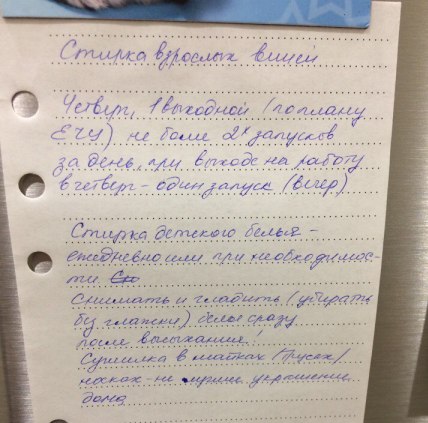 Стирка взрослых вищей
Четверг, 1 выходной (по плану
ЕЧЦ) не боле 2х запусков
за день, при выходе на работу
в четверг - один запуск (вечер)
Стирка детского белья -
ежедневно или при необходимос-
ти
Снимать и гладить (убирать
без глажки) белье сразу
после высыхания!
Сушилка в майках/трусах/
носках - не лучшие украшение
дома